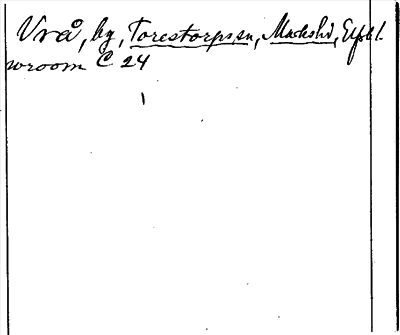 Vrå, by, Torestorps sn, Marks hd, Elfsb l.
wroom C 24